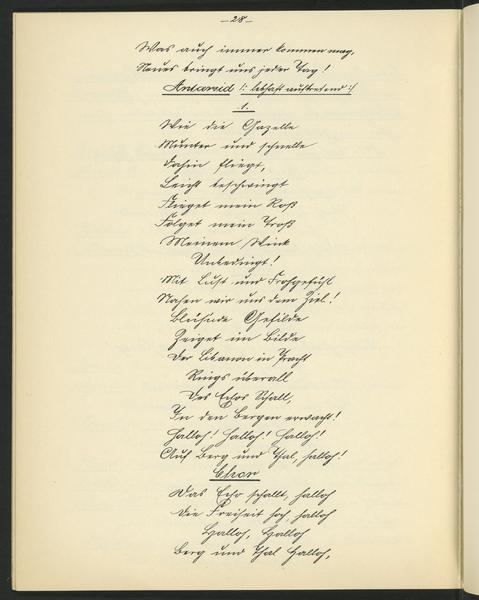 – 28 –
Was auch immer kommen mag,
Neues bringt uns jeder Tag!
Antarsid /: lebhaft auftretend :/
1.
Wie die Gazelle
Munter und schnelle
Dahin fliegt,
Leicht beschwingt
Flieget mein Roß
Folget mein Troß
Meinem Wink
Unbedingt!
Mit Lust und Frohgefühl
Nahen wir uns dem Ziel!
Blühnde Gefilde
Zeiget im Bilde
Der Libanon in Pracht
Rings überall
Des Echos Schall,
In den Bergen erwacht!
Halloh! Halloh! Halloh!
Auf Berg und Thal, halloh!
Chor
Das Echo schallt, halloh
Die Freiheit hoch, halloh
Halloh, Halloh
Berg und Thal Halloh,